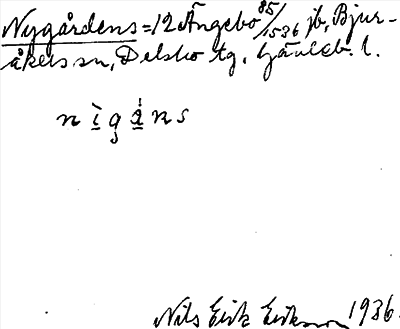 Nygårdens = 12 Ängebo 85/1536 jb, Bjur-
åkers sn, Delsbo tg, Gävleb. l.
n i g a n s
Nils Erik Eriksson 1936.